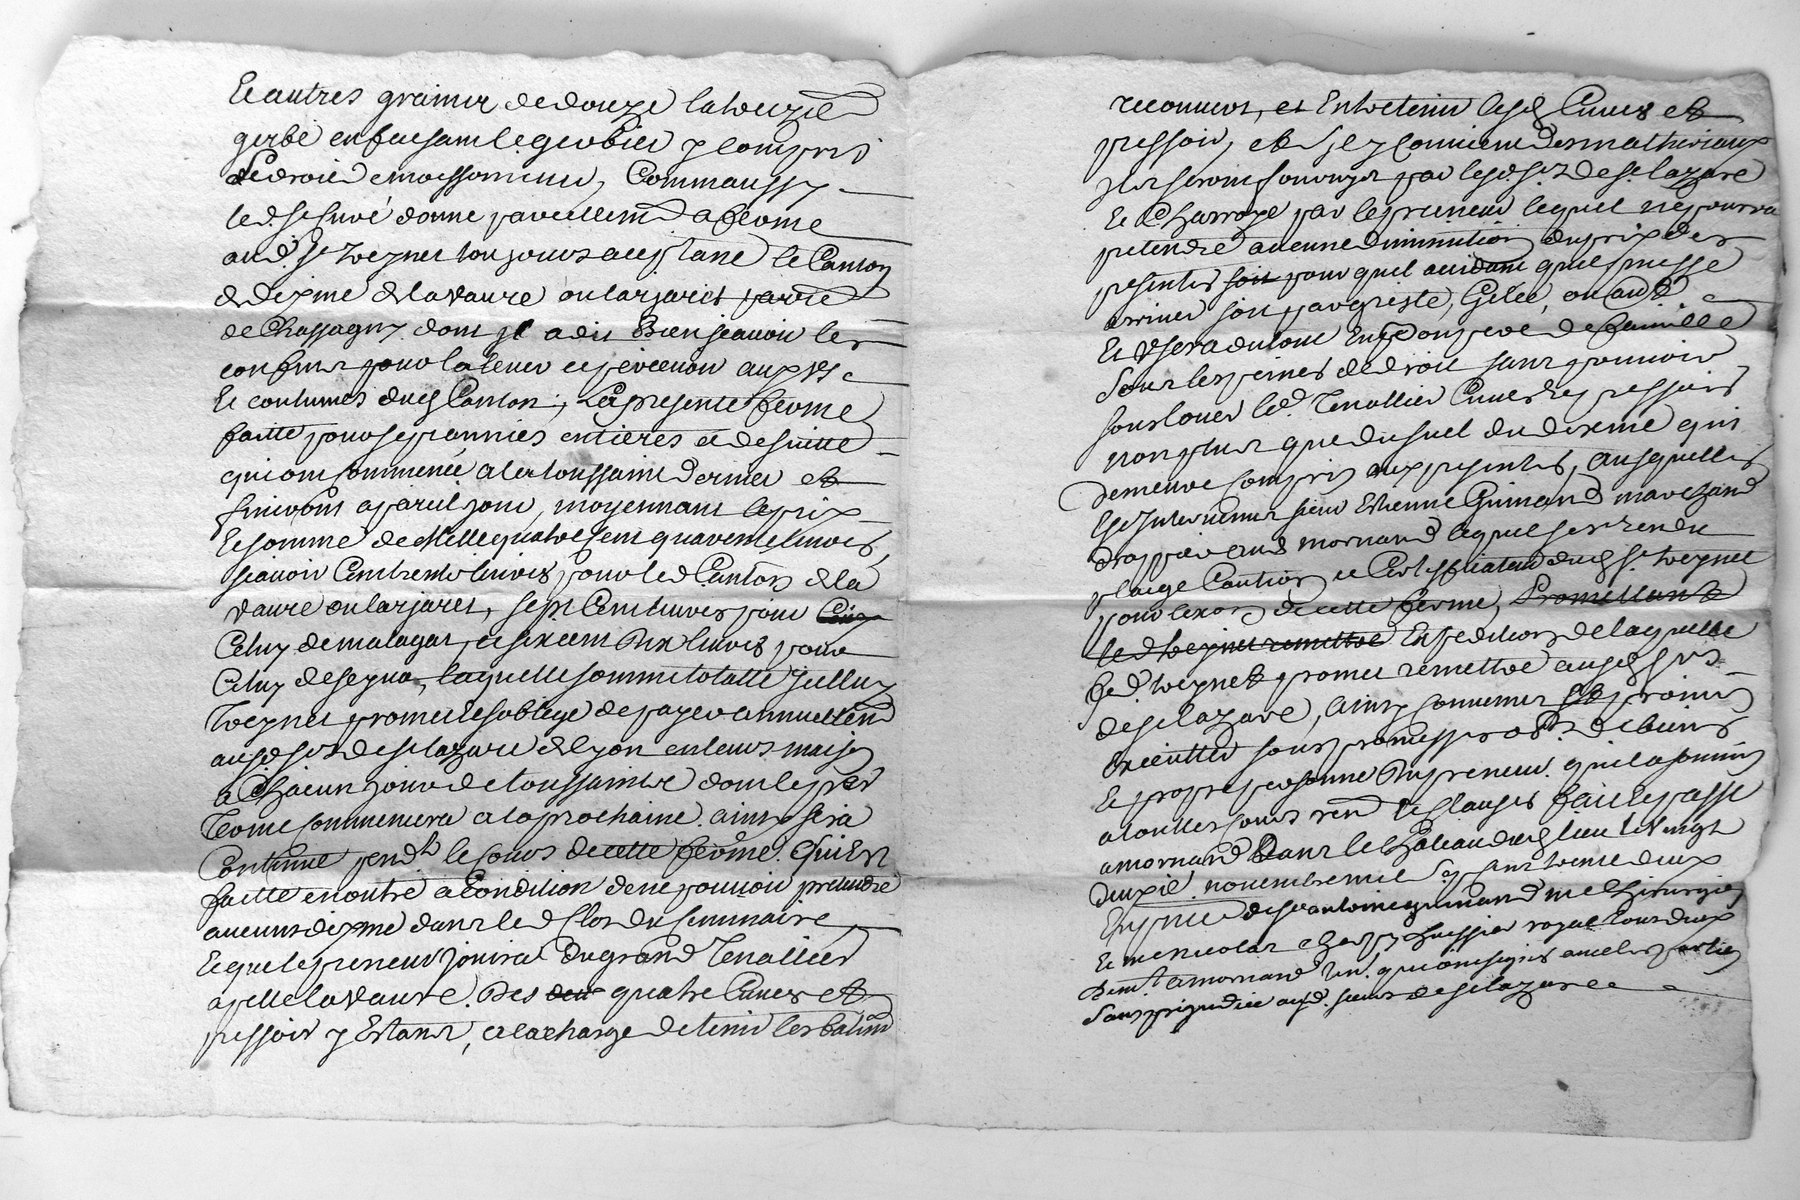 Et autres grains de douze la treizie
gerbe en faisant le gerbier y compris
le droit de moissonneur, Comm'aussy
led. Sr Curé donne pareillemt a ferme
aud. Sr Treynet toujours acceptant le Canton
de dixme de la Vaure ou larjaret partie
de Chassagny dont il a dit Bien scavoir les
confins pour la lever et percevoir aux us
Et coutumes dud Canton, La presente ferme
faitte pour sept années entieres et de suitte
qui ont commencé a la toussaint dernier et
finiront a pareil jour, moyennant le prix
Et somme de Mille quatre cent quarente livres,
scavoir Cent trente livres pour led Canton de la
Vaure ou larjaret, sept Cent livres pour
Celuy de malagat, et six cent Dix livres pour
Celuy de seyna, laquelle somme totalle Icelluy
Treynet promet et s'oblige de payer annuellemt
ausd Srs de St lazare de Lyon en leurs maison
a Chacun jour de toussaints dont le per
Terme commencera a la prochaine ainsy sera
Continué pendt le Cours de cette ferme. Qui Est
faitte en outre a Condition de ne pouvoir pretendre
aucuns dixme dans led Clos du seminaire,
Et que le preneur jouira Du grand Tenallier
apellé la Vaure. Des quatre Cuves et
pressoir y Estant, a la charge de tenir les batimt
reconverts, et Entretenir lesd Cuves et
pressoir, et s'il y Convient des matheriaux
Ils seront fournys par lesd Srs de St lazare
Et Charroyé par le preneur lequel ne pourra
pretendre aucune diminution du prix des
presentes soit pour quel accidant que puisse
arriver soit par greste, Gelée, ou autre
Et Usera du tout En bon pere de famille
sous les peines de droit sans pouvoir
sous louer led. Tenallier Cuves et pressoirs
non plus que du suel du dixme qui
demeure Compris aux presentes, ausquelles
Est Intervenu sieur Estienne Guinand marchand
drappier aud mornand lequel sest rendu
plaige Caution et Certifficateur dud Sr Treynet
pour de cette ferme, Promettant
led Treynet remettre Expedition de laquelle
led Treynet promet remettre ausd Srs
de St lazare, ainsy Convenu promis
Executter sous promesses obt. de biens
Et propre personne Du preneur qui la soumis
a touttes Cours rend et Clauses fait et passé
a mornand Dans le Chateau dud lieu le Vingt
Deuxie. novembre mil sept cent trente deux
En pnce de Sr antoine guinand me Chirurgien
Et me nicolas huissier royal tous deux
demt. a mornand qui ont signés avec les parties
Sans prejudice ausd. sieurs de St lazare